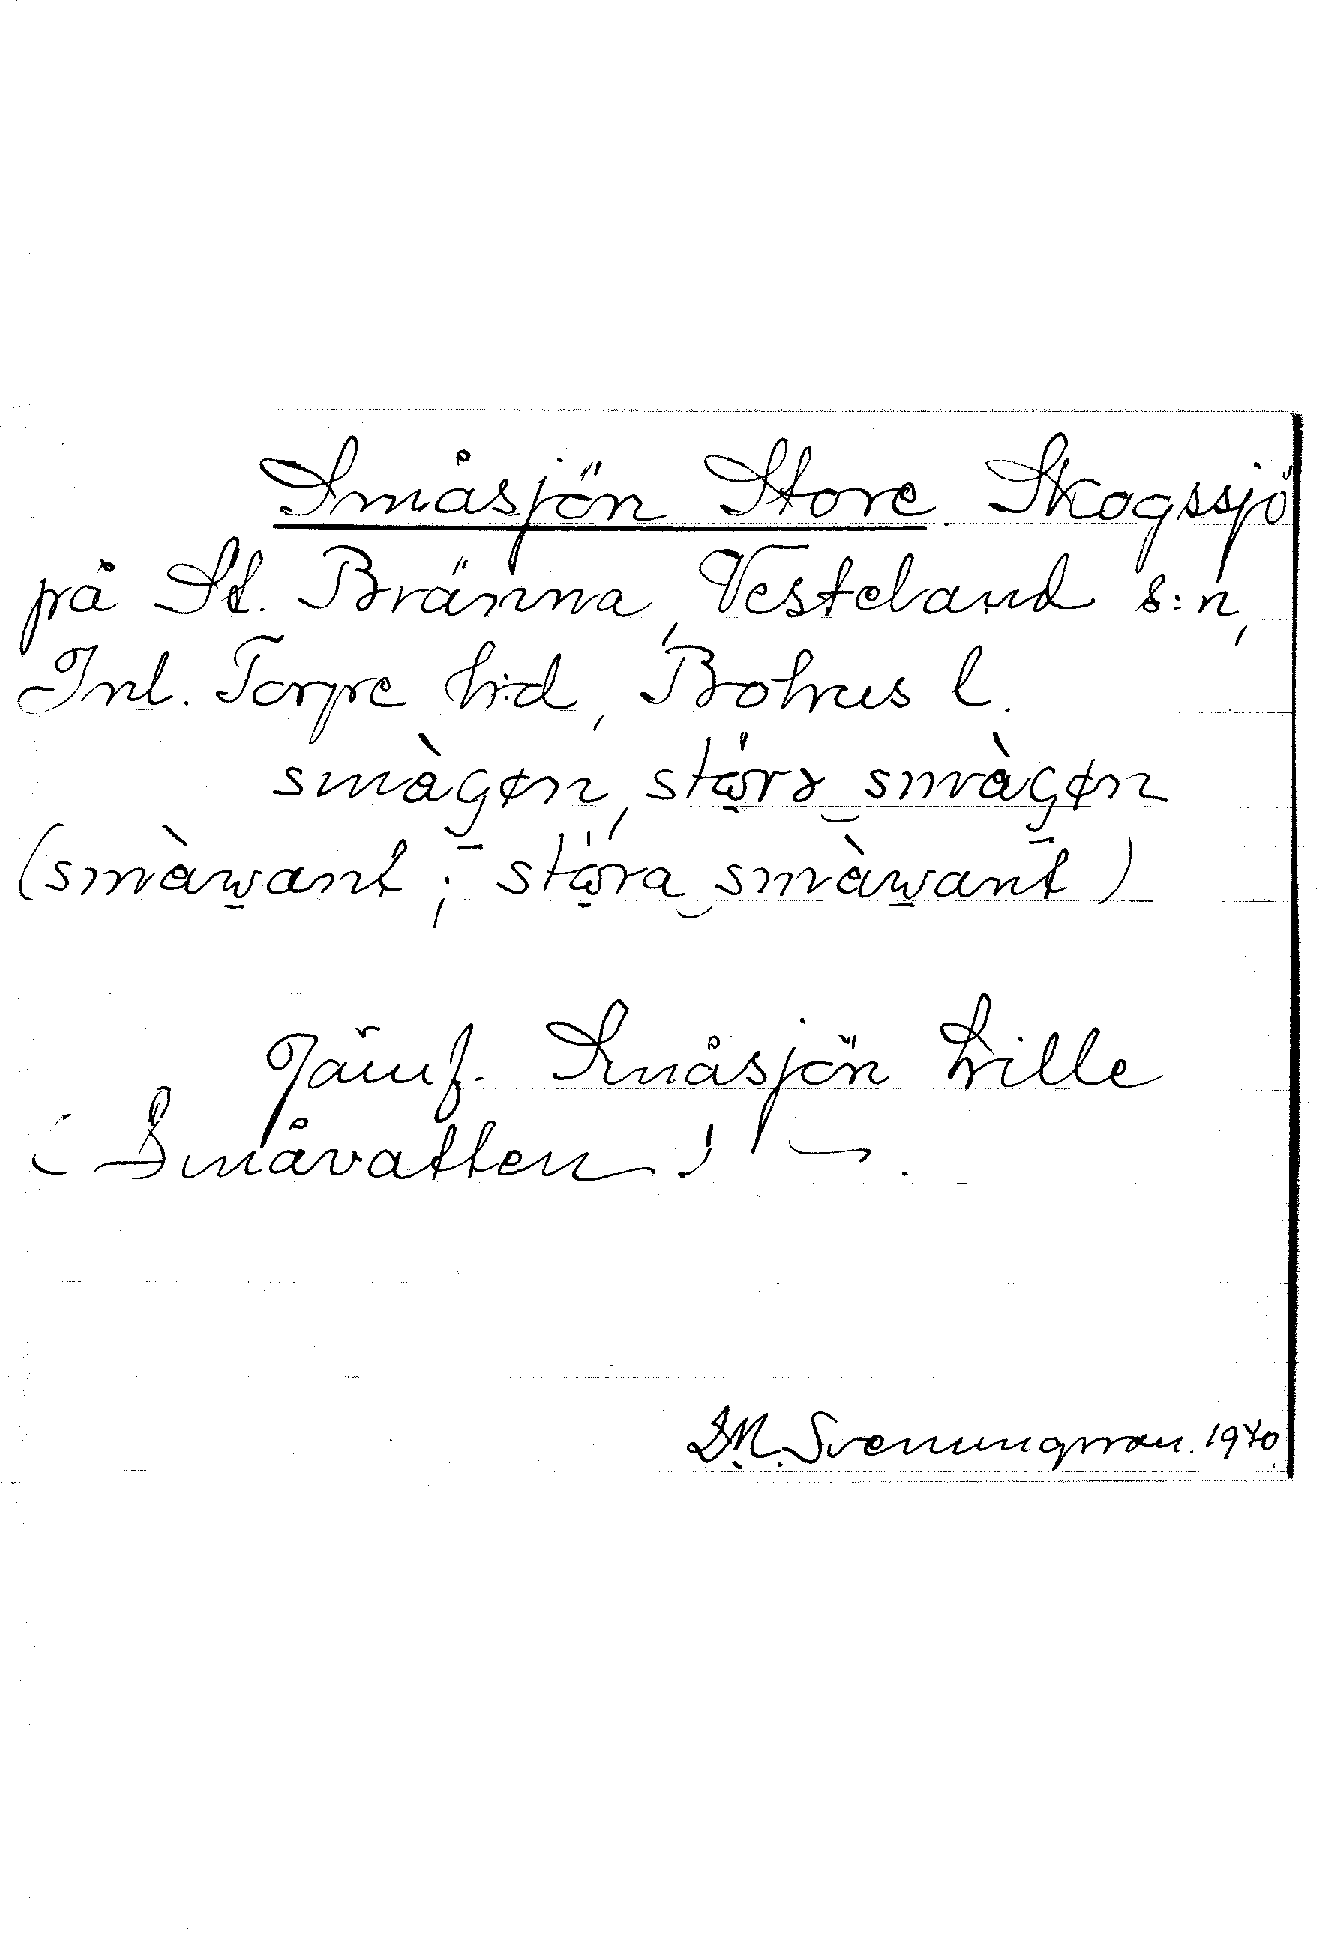 Småsjön Store Skogssjö
på St. Bränna, Vesteland s:n,
Inl. Torpe h:d, Bohus l.
smàgøn, stǫ́rə smàgøn
(smàwant; stǫ́ra smàwant)
Jämf. Småsjön Lille
(Småvatten!).
D.M. Svenungsson. 1940